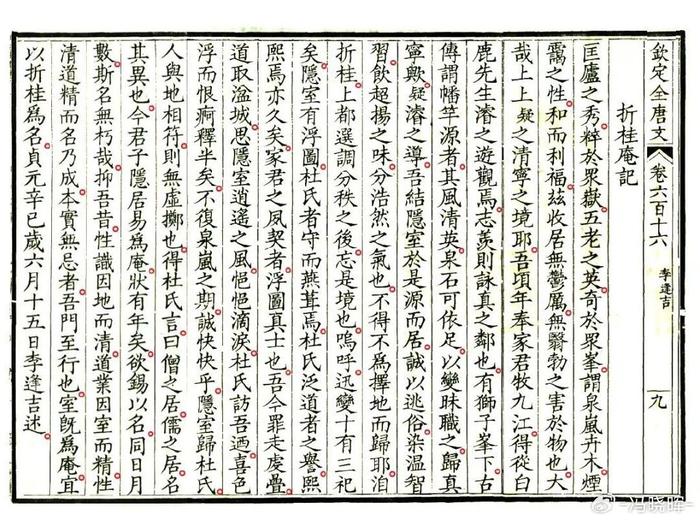 欽定全唐文 卷六百十六 李逢吉 九
折桂庵記
匡廬之秀粹於眾嶽五老之英奇於眾峯謂泉風卉木煙
靄之性和而利福兹收居無鬱厲無翳勃之害於物也大
哉上上疑之清寧之境耶吾頃年奉家君牧九江得從白
鹿先生濬之遊觀焉志羨則詠真之鄰也有獅子峯下古
傳謂幡竿源者其風清英泉石可依足以變昧職之歸真
寧歟疑濬之導吾結隱室於是源而居誠以逃俗染溫智
習飲超揚之味分浩然之氣也不得不爲擇地而歸耶洎
折桂上都選調分秩之後忘是境也嗚呼迅變十有三祀
矣隱室有浮圖杜氏者守而燕葺焉杜氏泛道者之譽熙
熙焉亦久矣家君之夙契者浮圖真士也吾今罪走虔疊
道取湓城思隱室逍遙之風悒悒滴淚杜氏訪吾迺喜色
浮而恨痾釋半矣不復泉嵐之期誠快快乎隱室歸杜氏
人與地相符則無虛擲也得杜氏言曰僧之居儒之居名
其異也今君子隱居易爲庵狀有年矣欲錫以名同日月
數斯名無朽哉抑吾昔性識因地而清道業因室而精性
清道精而名乃成本實無忌者吾門至行也室旣爲庵宜
以折桂爲名貞元辛巳歲六月十五日李逢吉述
-冯晓晖-